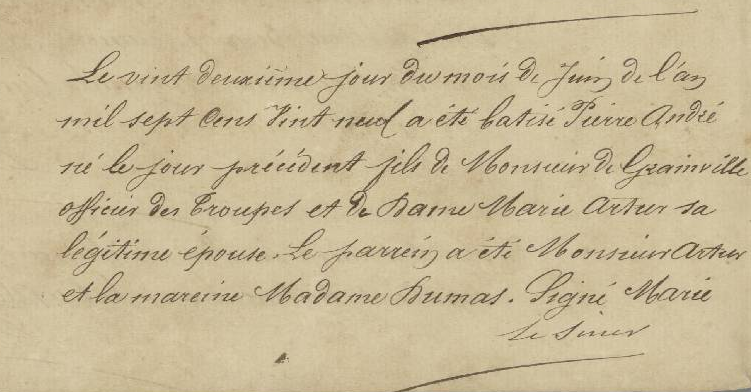 Le vint deuxième jour du mois de Juin de l'an
mil sept Cens Vint neuf a été batisé Pierre André
né le jour précédent fils de Monsieur de Grainville
officier des Troupes et de Dame Marie Artur sa
légitime épouse. Le parrein a été Monsieur Artur
et la mareine Madame Dumas. Signé Marie
Le Siner